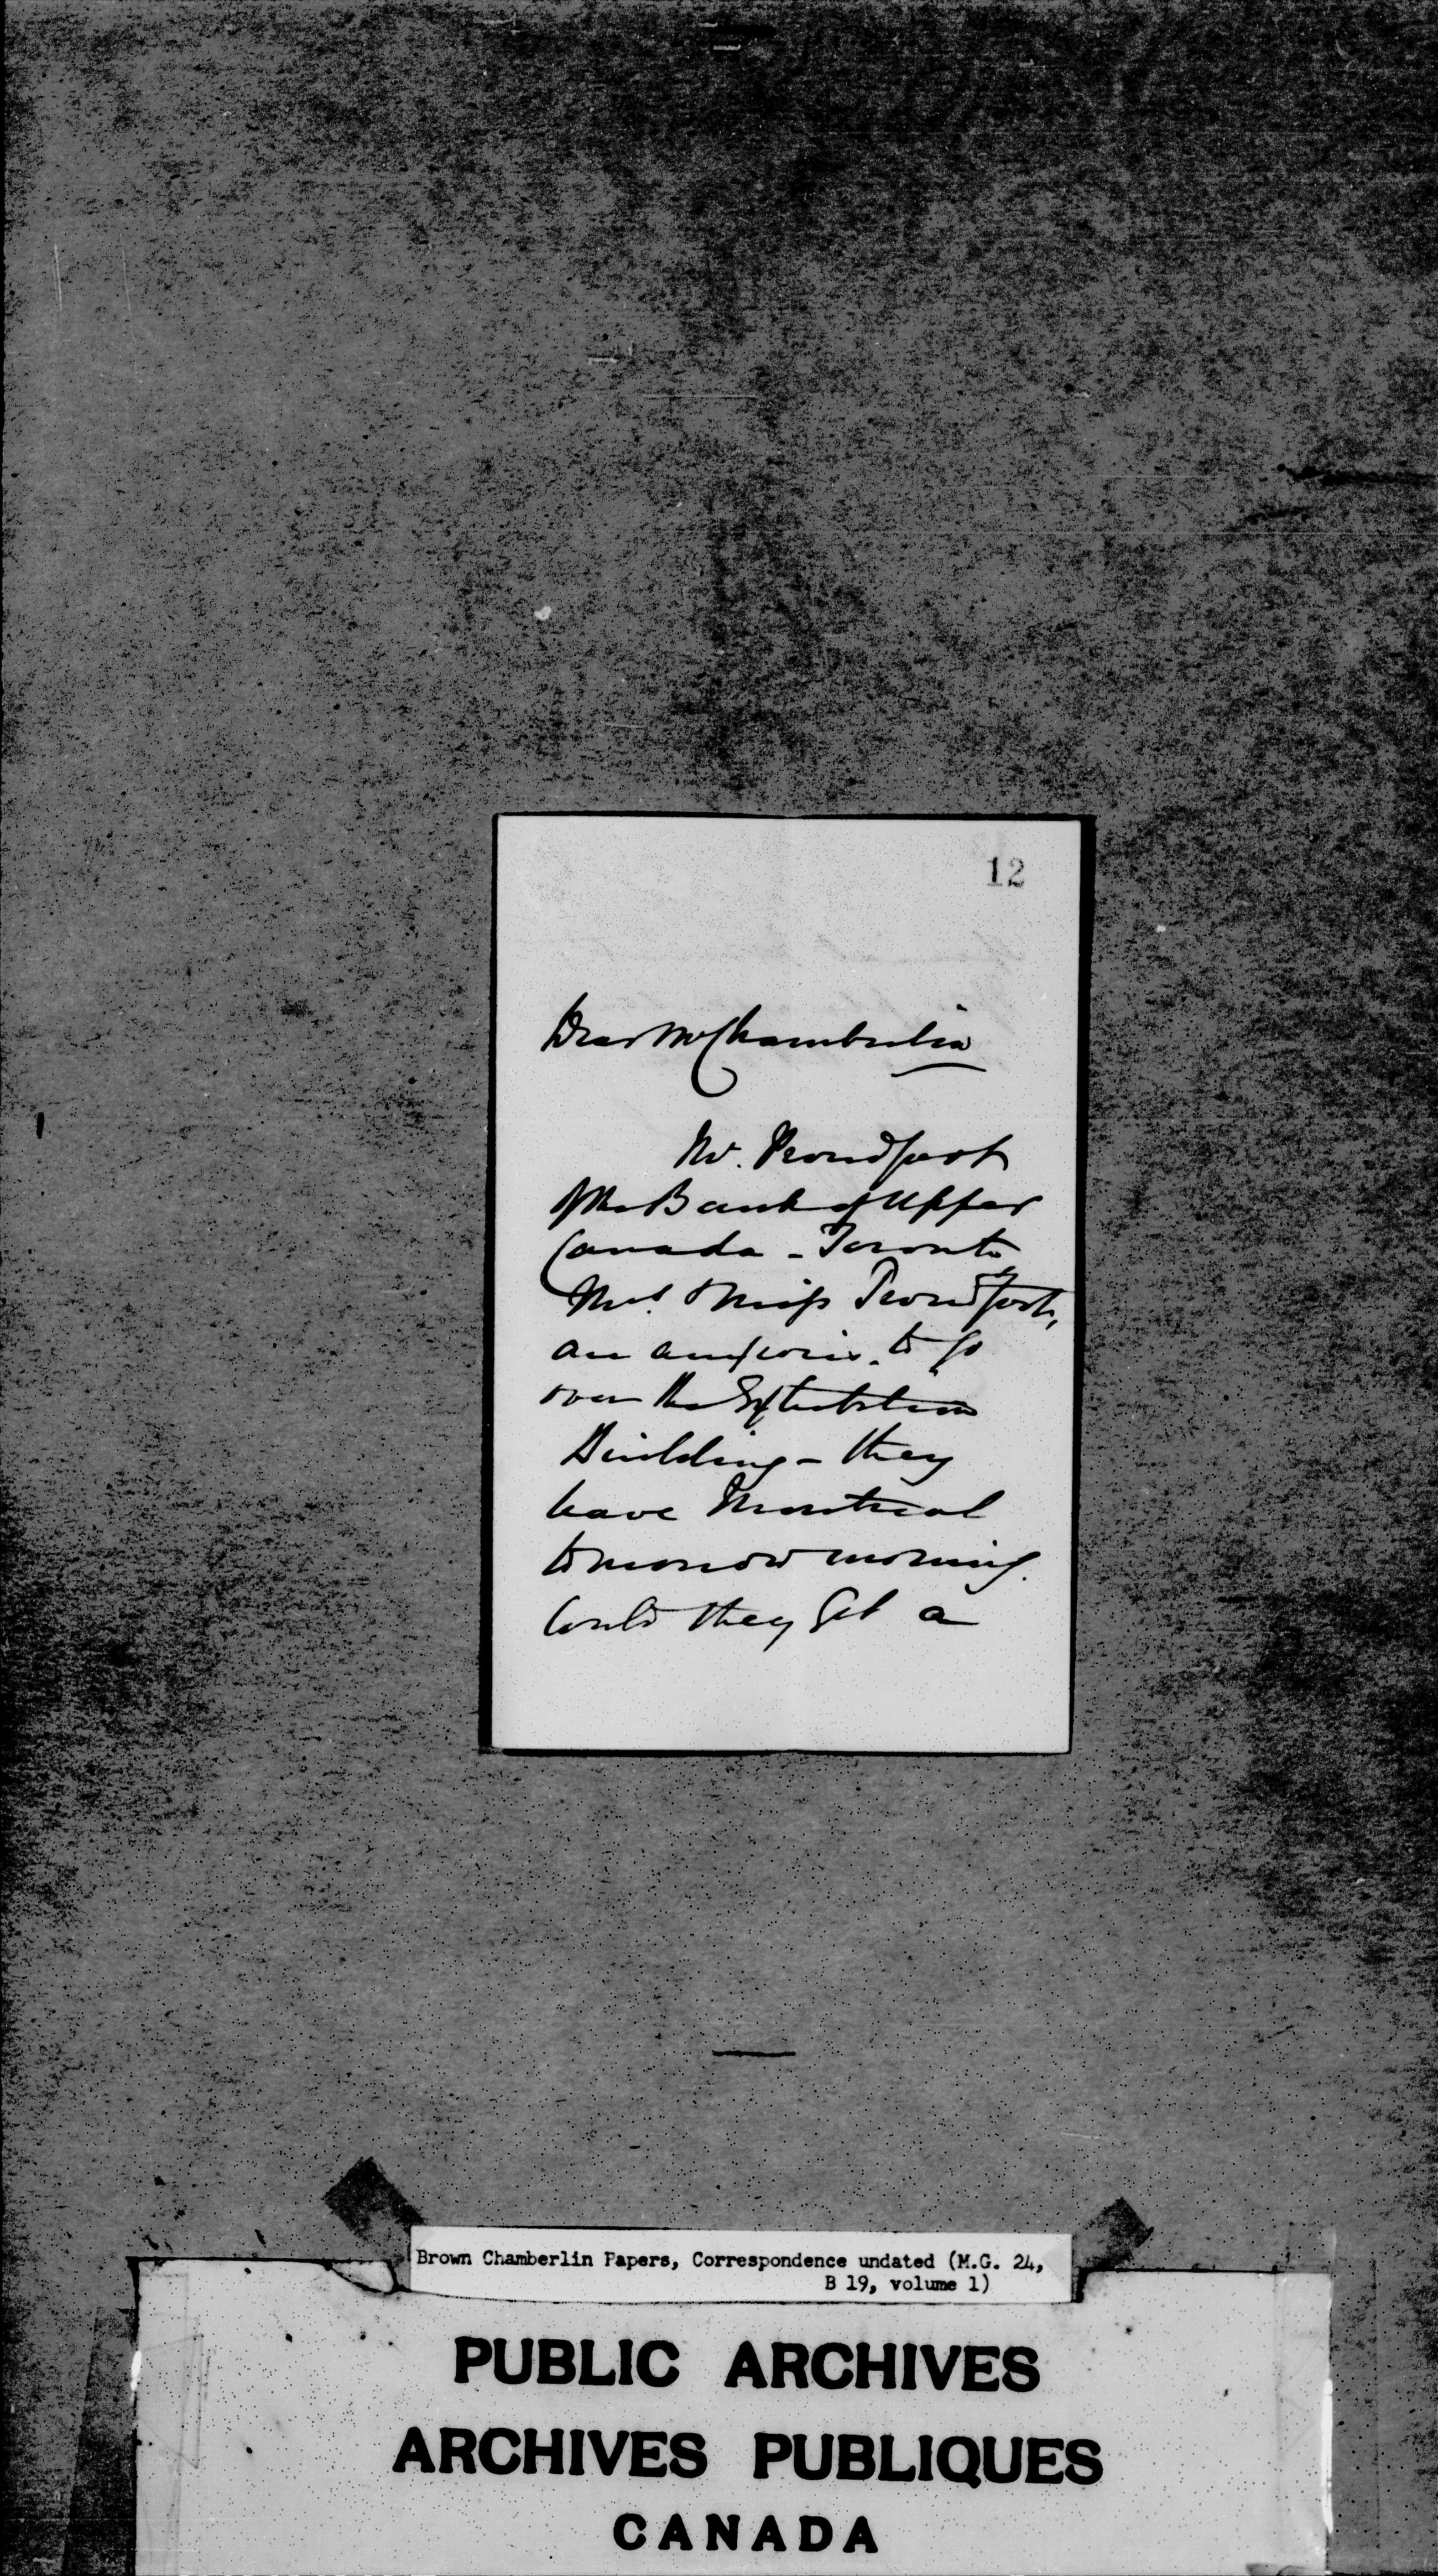 12
Dear Mr Chamberlin
Mr. Proudfoot
of the Bank of Upper
Canada - Toronto
Mrs. & Miss Proudfoot,
are anxious to go
over the Exhibition
Building - they
leave Montreal
tomorrow morning.
Could they get a
Brown Chamberlin Papers, Correspondence undated (M.G. 24,
B 19, volume 1)
PUBLIC ARCHIVES
ARCHIVES PUBLIQUES
CANADA